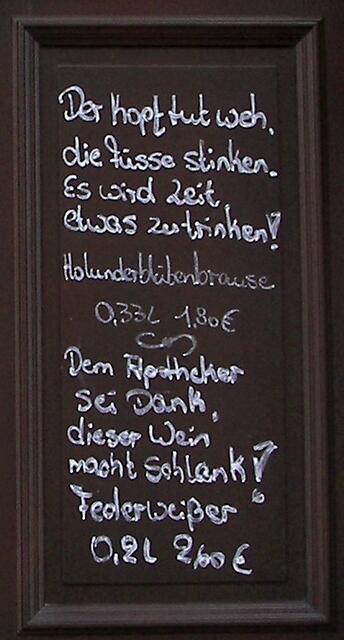 Der Kopf tut weh,
die Füsse stinken.
Es wird Zeit,
etwas zu trinken!
Holunderblütenbrause
0,33L 1,80€
Dem Apotheker
sei Dank,
dieser Wein
macht Schlank!
Federweißer
0,2L 2,60€